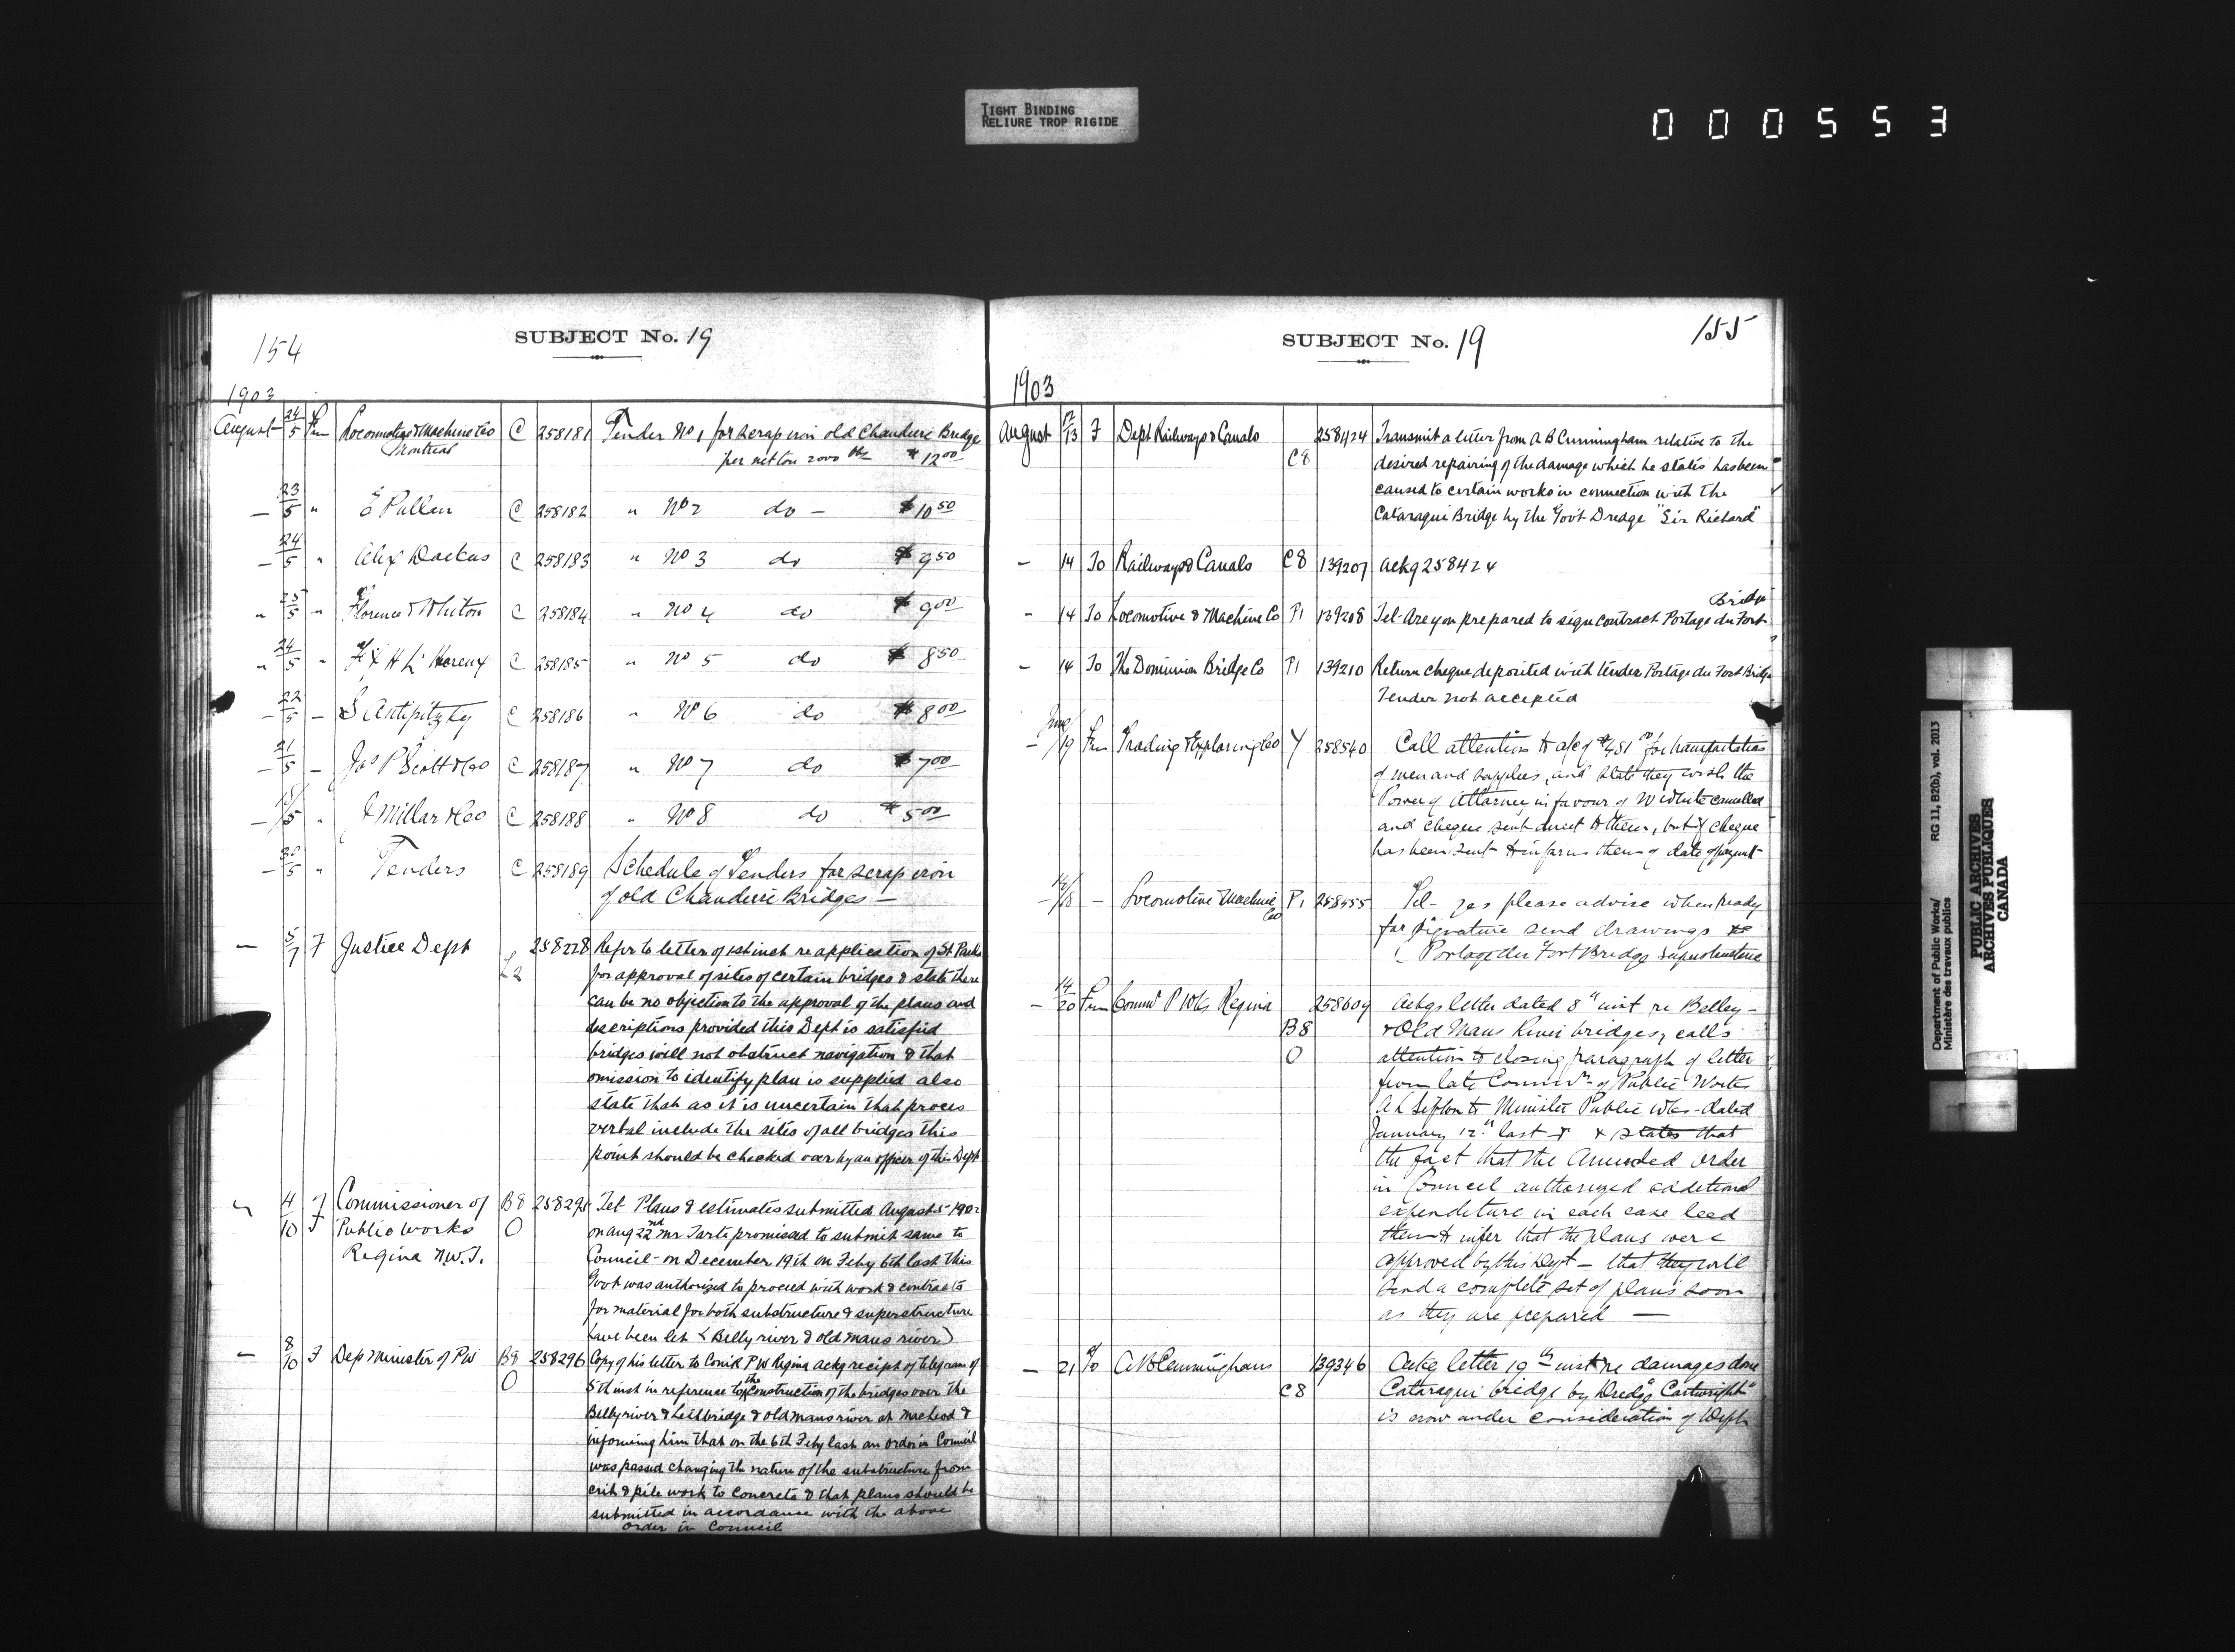 TIGHT BINDING
RELIURE TROP RIGIDE
000553
154
SUBJECT No. 19
1903
August 24/5 Fm Locomotive & Machine Co C 258181 Tender No 1 for scrap iron old Chaudiere Bridge
Montreal per net ton 2000 lbs $12 00
— 23/5 " E Pullan C 258182 " No 2 do — $10 50
— 24/5 " Alex C 258183 " No 3 do $9 50
" 25/5 " Florence & C 258184 " No 4 do $9 00
" 24/5 " C 258185 " No 5 do $8 50
— 22/5 — S C 258186 " No 6 do $8 00
— 21/5 — Jas P Scott & Co C 258187 " No 7 do $7 00
— /5 " J Millar & Co C 258188 " No 8 do $5 00
— /5 " Tenders C 258189 Schedule of Tenders for scrap iron
of old Chaudiere Bridges —
— 5/7 F Justice Dept L2 258228 Refer to letter of 1st inst re application of St Pauls
for approval of sites of certain bridges & state there
can be no objection to the approval of the plans and
descriptions provided this Dept is satisfied
bridges will not obstruct navigation & that
omission to identify plan is supplied also
state that as it is uncertain that proces
verbal include the sites of all bridges this
point should be checked over by an officer of this Dept
4/10 F Commissioner of B8 258295 Tel Plans & estimates submitted August 5 1902
Public Works O on Aug 22nd Mr Tarte promised to submit same to
Regina N.W.T. Council - on December 19th on Feby 6th last this
Govt was authorized to proceed with work & contracts
for material for both substructure & superstructure
have been let (Belly river & old mans river)
— 8/10 F Dep Minister of PW B8 258296 Copy of his letter to Comr P W Regina ackg receipt of telegram of
O 5th inst in reference to the construction of the bridges over the
Belly river & Lethbridge & old mans river at Macleod &
informing him that on the 6th Feby last an order in Council
was passed changing the nature of the substructure from
crib & pile work to concrete & that plans should be
submitted in accordance with the above
order in Council
SUBJECT No. 19
155
1903
August 12/13 F Dept Railways & Canals 258424 Transmit a letter from A B Cunningham relative to the
C8 desired repairing of the damage which he states has been
caused to certain works in connection with the
Cataraqui Bridge by the Govt Dredge "Sir Richard"
— 14 To Railways & Canals C8 139207 ackg 258424
Bridge
— 14 To Locomotive & Machine Co P1 139208 Tel- Are you prepared to sign contract Portage du Fort
?
— 14 To The Dominion Bridge Co P1 139210 Return cheque deposited with tender Portage du Fort Bridge
Tender not accepted
— June/19 Fm Trading & Exploring Co Y 258540 Call attention to a/c of $451 for transportation
of men and supplies, and state they wish the
Power of Attorney in favour of W White cancelled
and cheque sent direct to them, but if cheque
has been sent to inform them of date of payment
— 14/18 — Locomotive Machine P1 258555 Tel- yes please advise when ready
Co for signature send drawings
( Portage du Fort Bridge Superstructure
— 14/20 Fm Commr P Wks Regina 258609 Ackgs letter dated 8th inst re Belley -
B8 & Old Mans River bridges, calls
O attention to closing paragraph of letter
from late Commr of Public Works
A L Sifton to Minister Public Wks - dated
January 12th last & & states that
the fact that the Amended Order
in Council authorized additional
expenditure in each case lead
them to infer that the plans were
approved by this Dept — that they will
send a complete set of plans soon
as they are prepared —
— 21 To A B Cunningham 139346 Ackg letter 19th inst re damages done
C8 Cataraqui bridge by Dredge "Cartwright"
is now under consideration of Dept
Department of Public Works/
Ministère des travaux publics
RG 11, B20(b), vol. 2013
PUBLIC ARCHIVES
ARCHIVES PUBLIQUES
CANADA